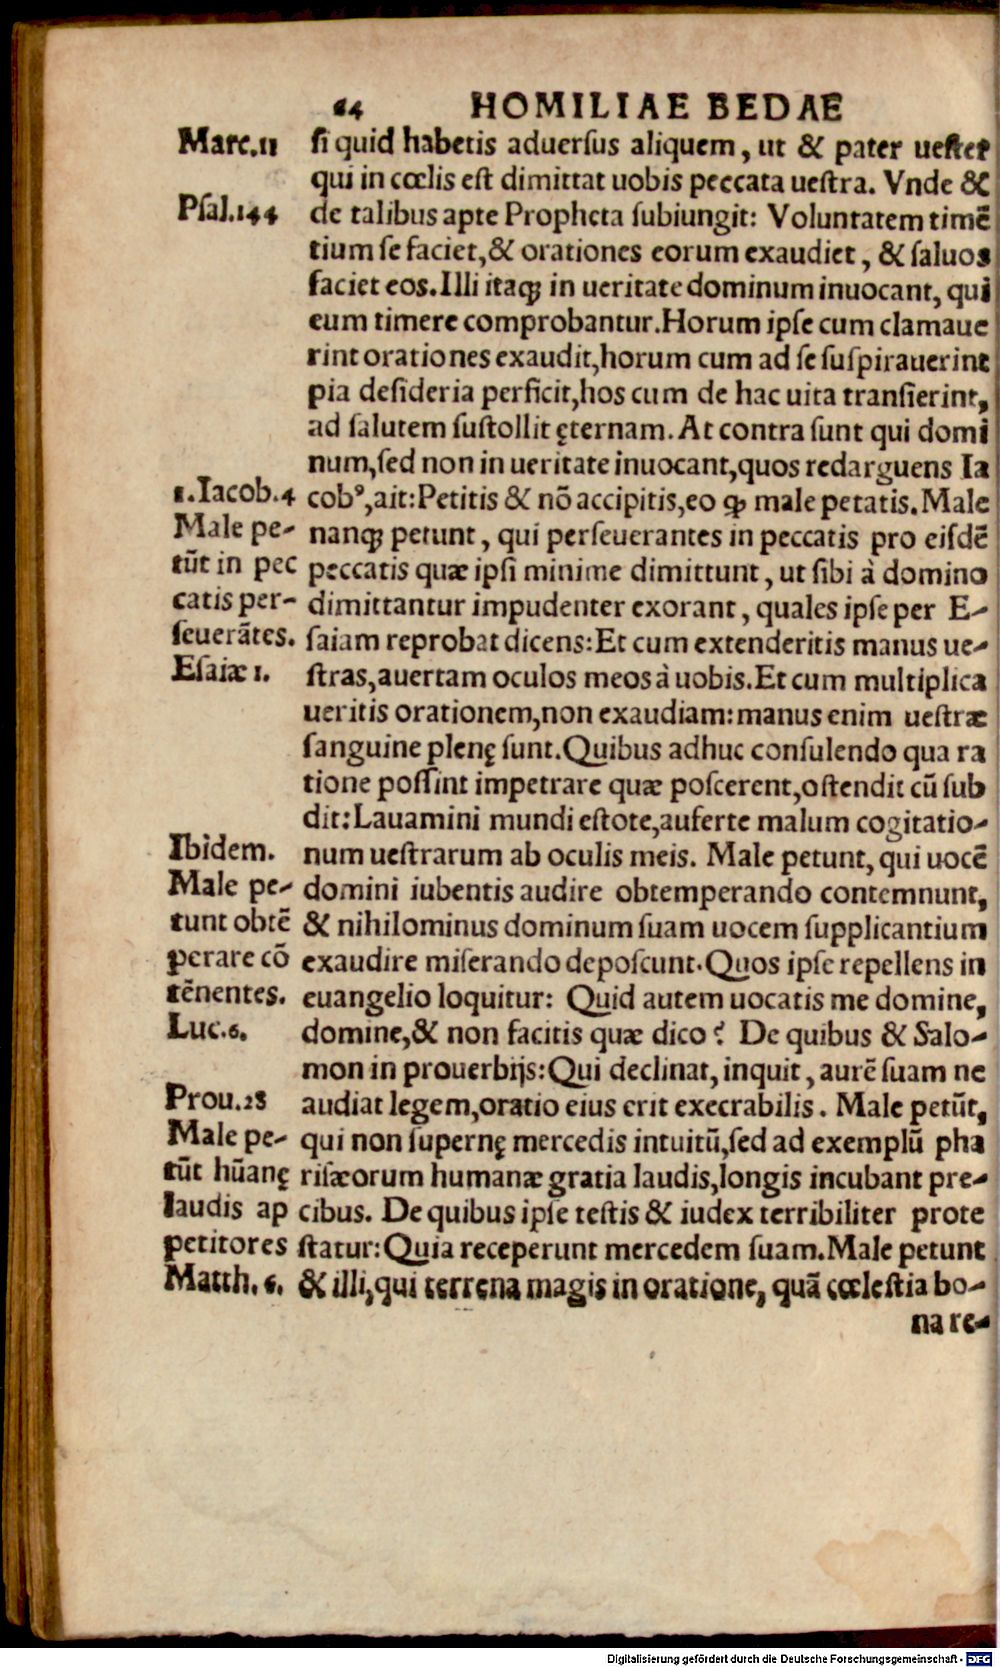 64 HOMILIAE BEDAE
Marc.11 si quid habetis aduersus aliquem, ut & pater uester
qui in cœlis est dimittat uobis peccata uestra. Vnde &
Psal.144 de talibus apte Propheta subiungit: Voluntatem timē
tium se faciet, & orationes eorum exaudiet, & saluos
faciet eos. Illi itaqꝫ in ueritate dominum inuocant, qui
eum timere comprobantur. Horum ipse cum clamaue
rint orationes exaudit, horum cum ad se suspirauerint
pia desideria perficit, hos cum de hac uita transierint,
ad salutem sustollit ęternam. At contra sunt qui domi
num, sed non in ueritate inuocant, quos redarguens Ia
1.Iacob.4 cobꝰ, ait: Petitis & nō accipitis, eo ꝙ male petatis. Male
Male pe- nanqꝫ petunt, qui perseuerantes in peccatis pro eisdē
tūt in pec peccatis quæ ipsi minime dimittunt, ut sibi à domino
catis per- dimittantur impudenter exorant, quales ipse per E-
seuerātes. saiam reprobat dicens: Et cum extenderitis manus ue-
Esaiæ 1. stras, auertam oculos meos à uobis. Et cum multiplica
ueritis orationem, non exaudiam: manus enim uestræ
sanguine plenę sunt. Quibus adhuc consulendo qua ra
tione possint impetrare quæ poscerent, ostendit cū sub
dit: Lauamini mundi estote, auferte malum cogitatio-
Ibidem. num uestrarum ab oculis meis. Male petunt, qui uocē
Male pe- domini iubentis audire obtemperando contemnunt,
tunt obtē & nihilominus dominum suam uocem supplicantium
perare cō exaudire miserando deposcunt. Quos ipse repellens in
tēnentes. euangelio loquitur: Quid autem uocatis me domine,
Luc.6. domine, & non facitis quæ dico? De quibus & Salo-
mon in prouerbijs: Qui declinat, inquit, aurē suam ne
Prou.28 audiat legem, oratio eius erit execrabilis. Male petūt,
Male pe- qui non supernę mercedis intuitū, sed ad exemplū pha
tūt hūanę risæorum humanæ gratia laudis, longis incubant pre-
laudis ap cibus. De quibus ipse testis & iudex terribiliter prote
petitores statur: Quia receperunt mercedem suam. Male petunt
Matth. 6. & illi, qui terrena magis in oratione, quā cœlestia bo-
na re-
Digitalisierung gefördert durch die Deutsche Forschungsgemeinschaft - DFG